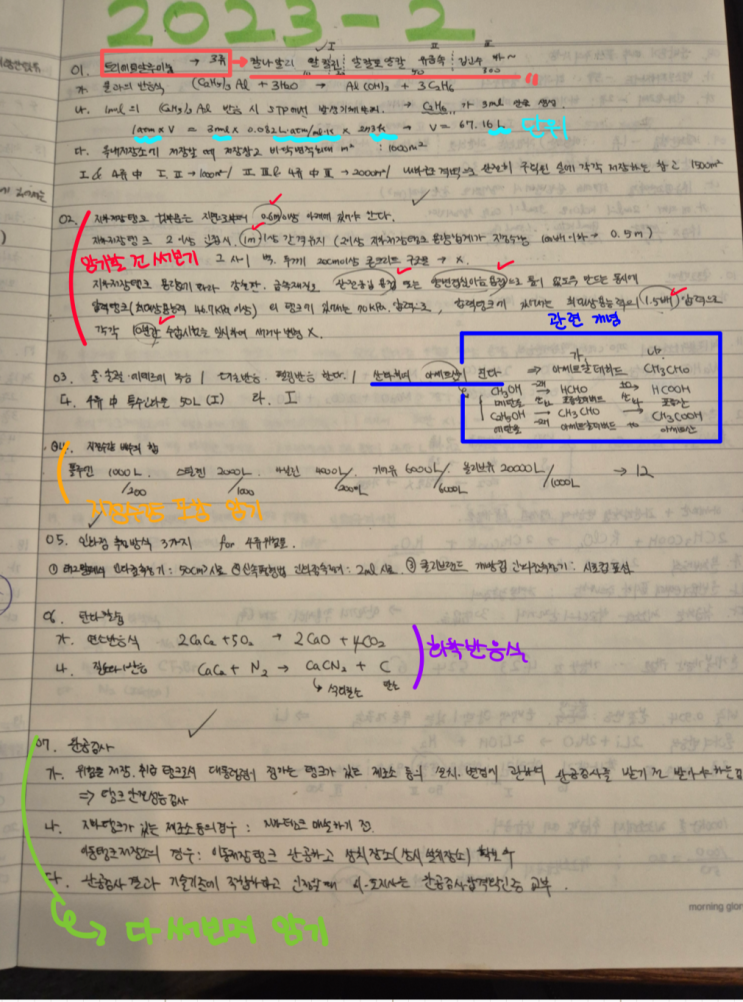 2023-2
01. 트리에틸알루미늄 → 3류 → 칼나알리 알
I II III
10 50 300
가. 물과의 반응식 (C₂H₅)₃Al + 3H₂O → Al(OH)₃ + 3C₂H₆
나. 1mol의 (C₂H₅)₃Al 반응 시 STP에서 → C₂H₆ 가 3mol 만큼 생성
1atm × V = 3mol × 0.082L·atm/mol·k × 273k → V = 67.16L 단위
다. 옥내저장소에 저장할 때 저장창고 바닥면적 m² : 1000m²
I & 4류 中 I, II → 1000m² / II, III & 4류 中 III → 2000m² / 내화구조 격벽으로 완전히 구획된 실에 각각 저장하는 창고 1500m²
02. 지하저장탱크 윗부분은 지면으로부터 0.6m이상 아래에 있어야 한다.
지하저장탱크 2 이상 1m 이상 간격유지 (2이상 지하저장탱크 용량합계가 지정수량 100배 이하 → 0.5m)
암기할 건 써보기 그 사이 벽, 두께 20cm이상 콘크리트 구조물 → X.
지하저장탱크 용량에 따라 강철판, 금속재질로 완전용입 용접 또는 양면겹침이음용접으로 틈이 없도록 만드는 동시에
압력탱크(최대상용압력 46.7kPa 이상) 외 탱크에 있어서는 70kPa 압력으로, 압력탱크에 있어서는 최대상용압력의 1.5배 압력으로
각각 10분간 수압시험을 실시하여 새거나 변형 X.
관련 개념
가. 나.
⇒ 아세트알데히드 CH₃CHO
CH₃OH → HCHO → HCOOH
메탄올 포름알데히드 포름산
C₂H₅OH → CH₃CHO → CH₃COOH
에탄올 아세트알데히드 아세트산
03. 물·에 녹음 / 환원반응, 은거울반응 한다. / 산화하여 아세트산이 된다
다. 4류 中 특수인화물 50L (I) 라. I
04. 지정수량 배수의 합
1000L 스티렌 2000L 아닐린 4000L 기어유 6000L 올리브유 20000L → 12
/200 /1000 /2000L /6000L /10000L
지정수량 포함 암기
05. 인화점 측정방식 3가지 for 4류위험물.
① 태그밀폐식 인화점측정기 : 50cm³ 시료 ② 신속평형법 인화점측정기 : 2ml 시료 ③ 클리브랜드 개방컵 인화점측정기 : 시료컵 표선
06. 탄화칼슘
가. 연소반응식 2CaC₂ + 5O₂ → 2CaO + 4CO₂
나. 질소와 반응 CaC₂ + N₂ → CaCN₂ + C
석회질소 탄소
화학반응식
07. 완공검사
가. 위험물 저장, 취급 탱크로서 대통령령이 정하는 탱크가 있는 제조소 등의 설치, 변경에 관하여 완공검사를 받기 전 받아야 하는
⇒ 탱크안전성능검사
나. 지하탱크가 있는 제조소등의경우 : 지하탱크 매설하기 전
이동탱크저장소의 경우 : 이동저장탱크 완공하고 상치장소(상시 설치장소) 확보 후
다. 완공검사 결과 기술기준에 적합하다고 인정할 때 시·도지사는 완공검사합격확인증 교부.
다 써보며 암기
morning glor